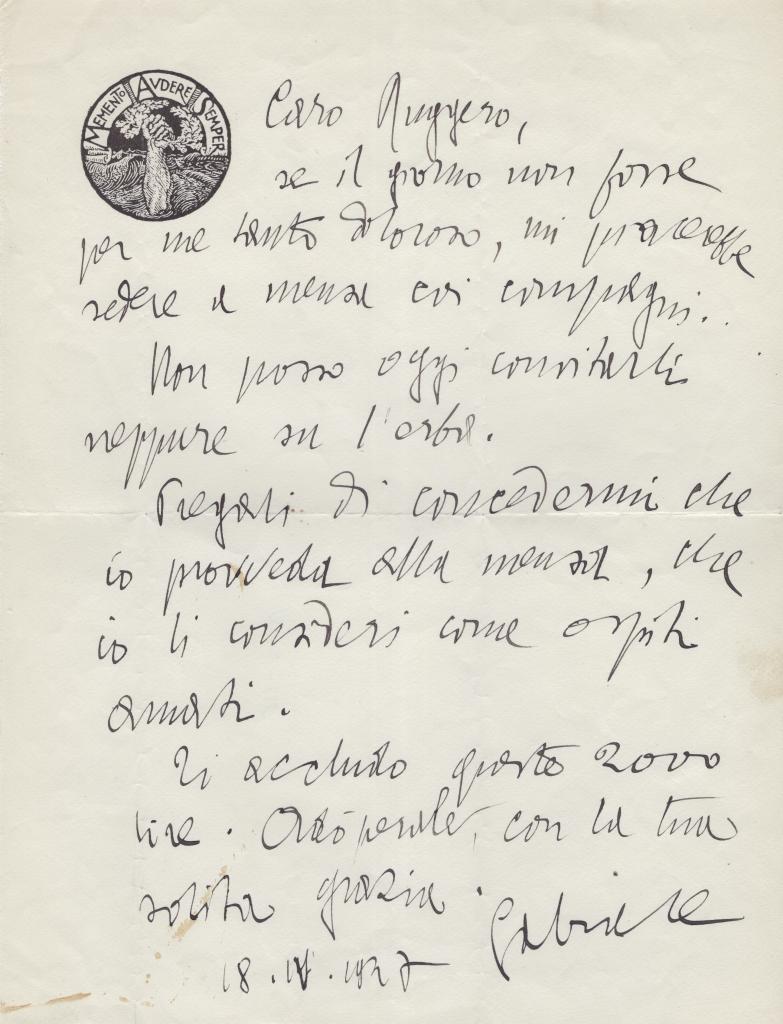 MEMENTO AVDERE SEMPER
Caro Ruggero,
se il giorno non fosse
per me tanto doloroso, mi piacerebbe
sedere a mensa coi compagni.
Non posso oggi convitarli
neppure su l'erba.
Pregali di concedermi che
io provveda alla mensa, che
io li consideri come ospiti
amati.
Ti accludo queste 2000
lire. Adoperale, con la tua
solita grazia.
Gabriele
18.IV.1927